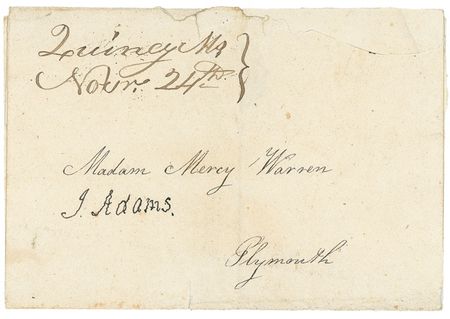 Quincy Ms
Novr. 24th
Madam Mercy Warren
J. Adams.
Plymouth